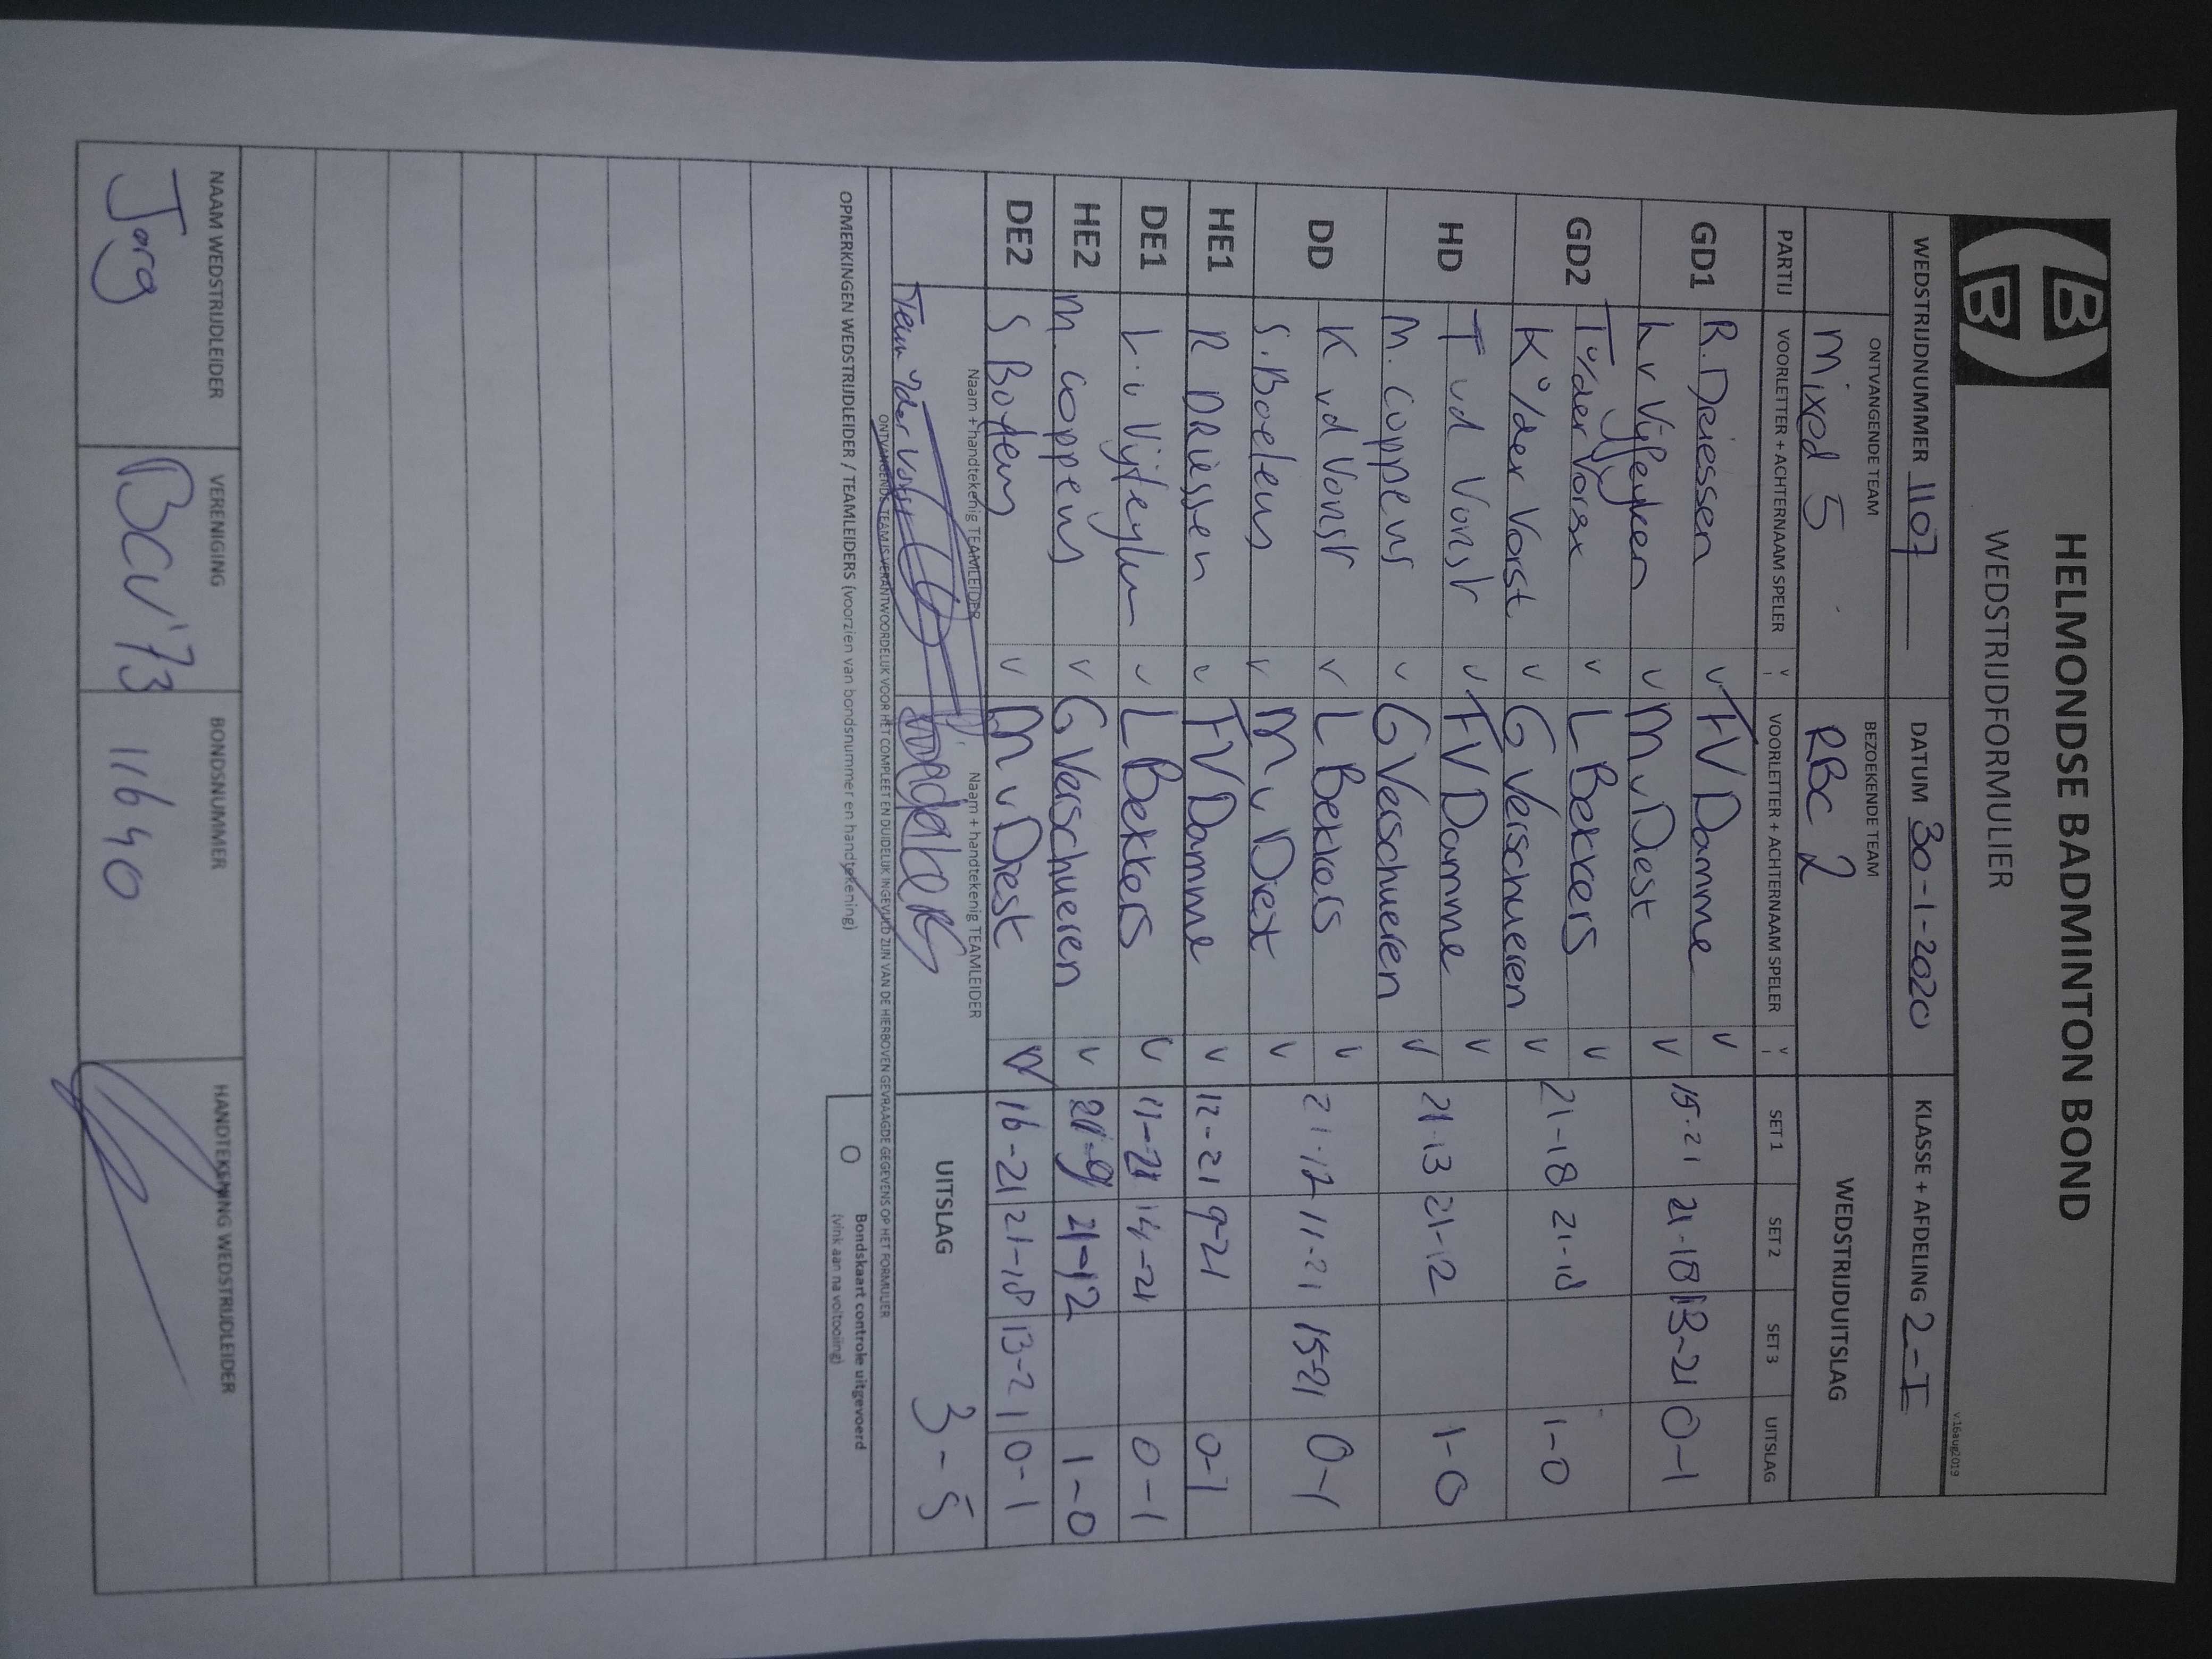 HELMONDSE BADMINTON BOND
WEDSTRIJDFORMULIER
v.16aug2019
WEDSTRIJDNUMMER 1107 DATUM 30-1-2020 KLASSE + AFDELING 2-I
ONTVANGENDE TEAM BEZOEKENDE TEAM WEDSTRIJDUITSLAG
Mixed 5 RBC 2
PARTIJ VOORLETTER + ACHTERNAAM SPELER V VOORLETTER + ACHTERNAAM SPELER V SET 1 SET 2 SET 3 UITSLAG
GD1 R. Driessen v F V Damme v 15-21 21-18 13-21 0-1
L v Vijfeyken v M v Diest v
GD2 T v/der Vorst v L Bekkers v 21-18 21-18 1-0
K v/der Vorst v G Verschueren v
HD T vd Vorst v F V Damme v 21-13 21-12 1-0
M. Coppens v G Verschueren v
DD K vd Vorst v L Bekkers v 21-12 11-21 15-21 0-1
S. Boelens v M v Diest v
HE1 R Driessen v F V Damme v 12-21 9-21 0-1
DE1 L. v v L Bekkers v 11-21 14-21 0-1
HE2 M. Coppens v G Verschueren v 21-9 21-12 1-0
DE2 S v M v Diest v 16-21 21-18 13-21 0-1
Naam + handtekenig TEAMLEIDER Naam + handtekenig TEAMLEIDER UITSLAG 3-5
ONTVANGENDE TEAM IS VERANTWOORDELIJK VOOR HET COMPLEET EN DUIDELIJK INGEVULD ZIJN VAN DE HIERBOVEN GEVRAAGDE GEGEVENS OP HET FORMULIER
OPMERKINGEN WEDSTRIJDLEIDER / TEAMLEIDERS (voorzien van bondsnummer en handtekening)
O Bondskaart controle uitgevoerd
(vink aan na voltooiing)
NAAM WEDSTRIJDLEIDER VERENIGING BONDSNUMMER HANDTEKENING WEDSTRIJDLEIDER
Jorg BCV'73 11640